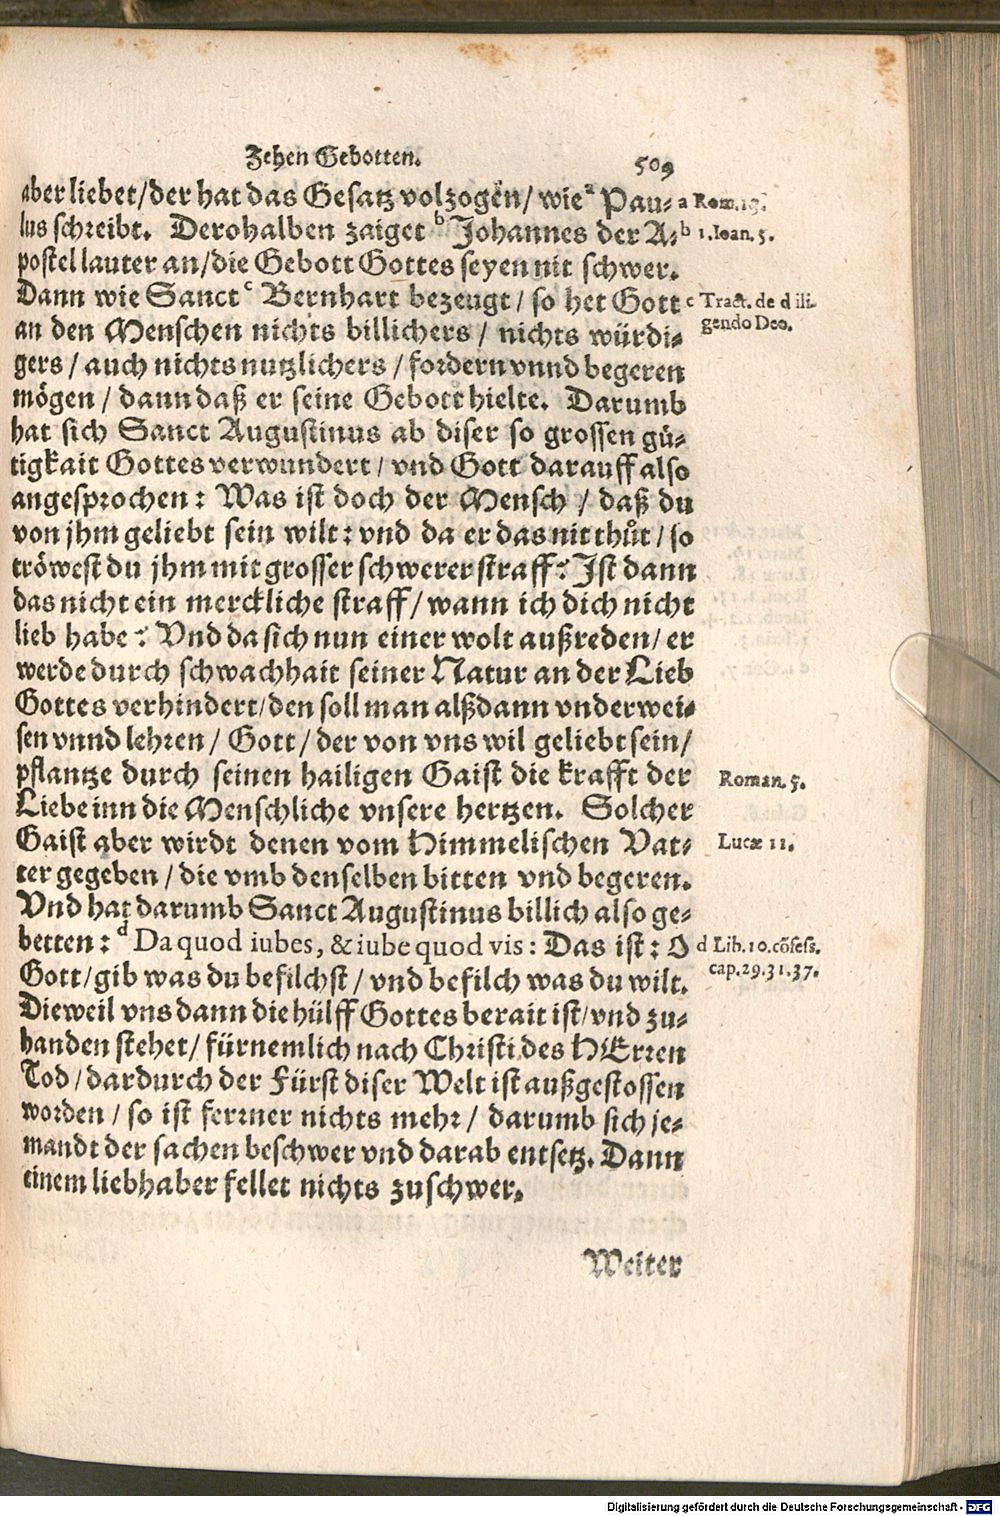 Zehen Gebotten. 509
aber liebet/der hat das Gesatz volzogen/ wie a Pau-
lus schreibt. Derohalben zaiget b Johannes der A-
postel lauter an/die Gebott Gottes seyen nit schwer.
Dann wie Sanct c Bernhart bezeugt/ so het Gott
an den Menschen nichts billichers / nichts würdi-
gers / auch nichts nutzlichers / fordern vnnd begeren
mögen / dann daß er seine Gebott hielte. Darumb
hat sich Sanct Augustinus ab diser so grossen gü-
tigkait Gottes verwundert / vnd Gott darauff also
angesprochen: Was ist doch der Mensch / daß du
von jhm geliebt sein wilt: vnd da er das nit thůt / so
tröwest du jhm mit grosser schwerer straff? Ist dann
das nicht ein merckliche straff/ wann ich dich nicht
lieb habe? Vnd da sich nun einer wolt außreden/ er
werde durch schwachhait seiner Natur an der Lieb
Gottes verhindert/den soll man alßdann vnderwei-
sen vnnd lehren/ Gott/ der von vns wil geliebt sein/
pflantze durch seinen hailigen Gaist die krafft der
Liebe inn die Menschliche vnsere hertzen. Solcher
Gaist aber wirdt denen vom Himmelischen Vat-
ter gegeben / die vmb denselben bitten vnd begeren.
Vnd hat darumb Sanct Augustinus billich also ge-
betten: d Da quod iubes, & iube quod vis: Das ist: O
Gott/ gib was du befilchst/ vnd befilch was du wilt.
Dieweil vns dann die hülff Gottes berait ist/vnd zu-
handen stehet/ fürnemlich nach Christi des HErren
Tod/dardurch der Fürst diser Welt ist außgestossen
worden / so ist ferrner nichts mehr/ darumb sich je-
mandt der sachen beschwer vnd darab entsetz. Dann
einem liebhaber fellet nichts zuschwer.
Weiter
a Rom. 13.
b 1. Ioan. 5.
c Tract. de dili-
gendo Deo.
Roman. 5.
Lucæ 11.
d Lib. 10. cõfess.
cap. 29. 31. 37.
Digitalisierung gefördert durch die Deutsche Forschungsgemeinschaft - DFG